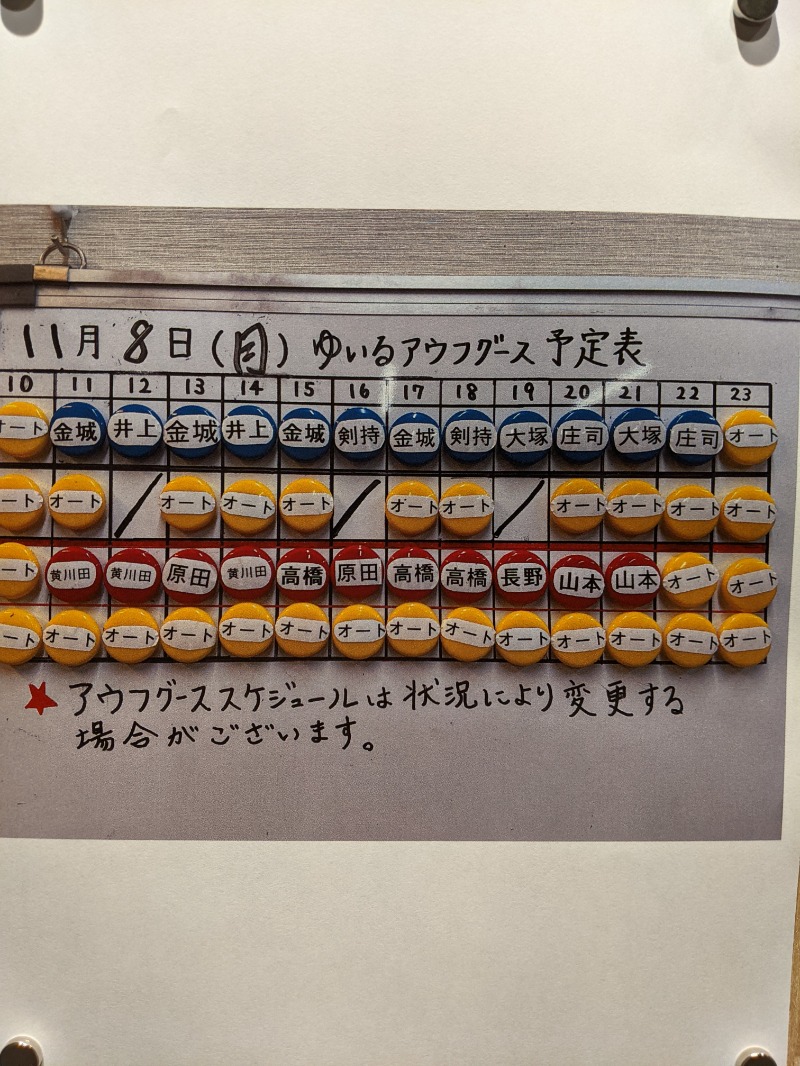 11月8日(月) ゆいるアウフグース予定表
10 11 12 13 14 15 16 17 18 19 20 21 22 23
オート 金城 井上 金城 井上 金城 剣持 金城 剣持 大塚 庄司 大塚 庄司 オート
オート オート / オート オート オート / オート オート / オート オート オート オート
オート 黄川田 黄川田 原田 黄川田 高橋 原田 高橋 高橋 長野 山本 山本 オート オート
オート オート オート オート オート オート オート オート オート オート オート オート オート オート
★アウフグーススケジュールは状況により変更する
場合がございます。